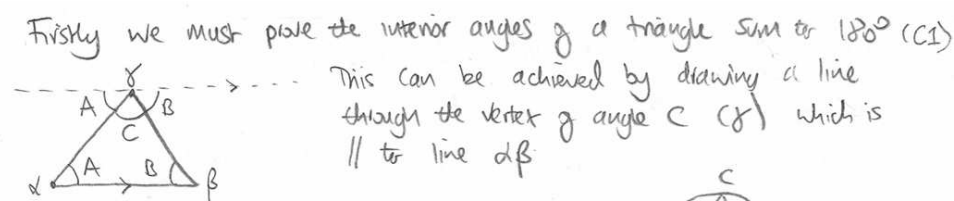 Firstly we must prove the interior angles of a triangle sum to 180° (C1)
This can be achieved by drawing a line
through the vertex of angle C (γ) which is
// to line αβ
γ
A B
C
A B
α β
C